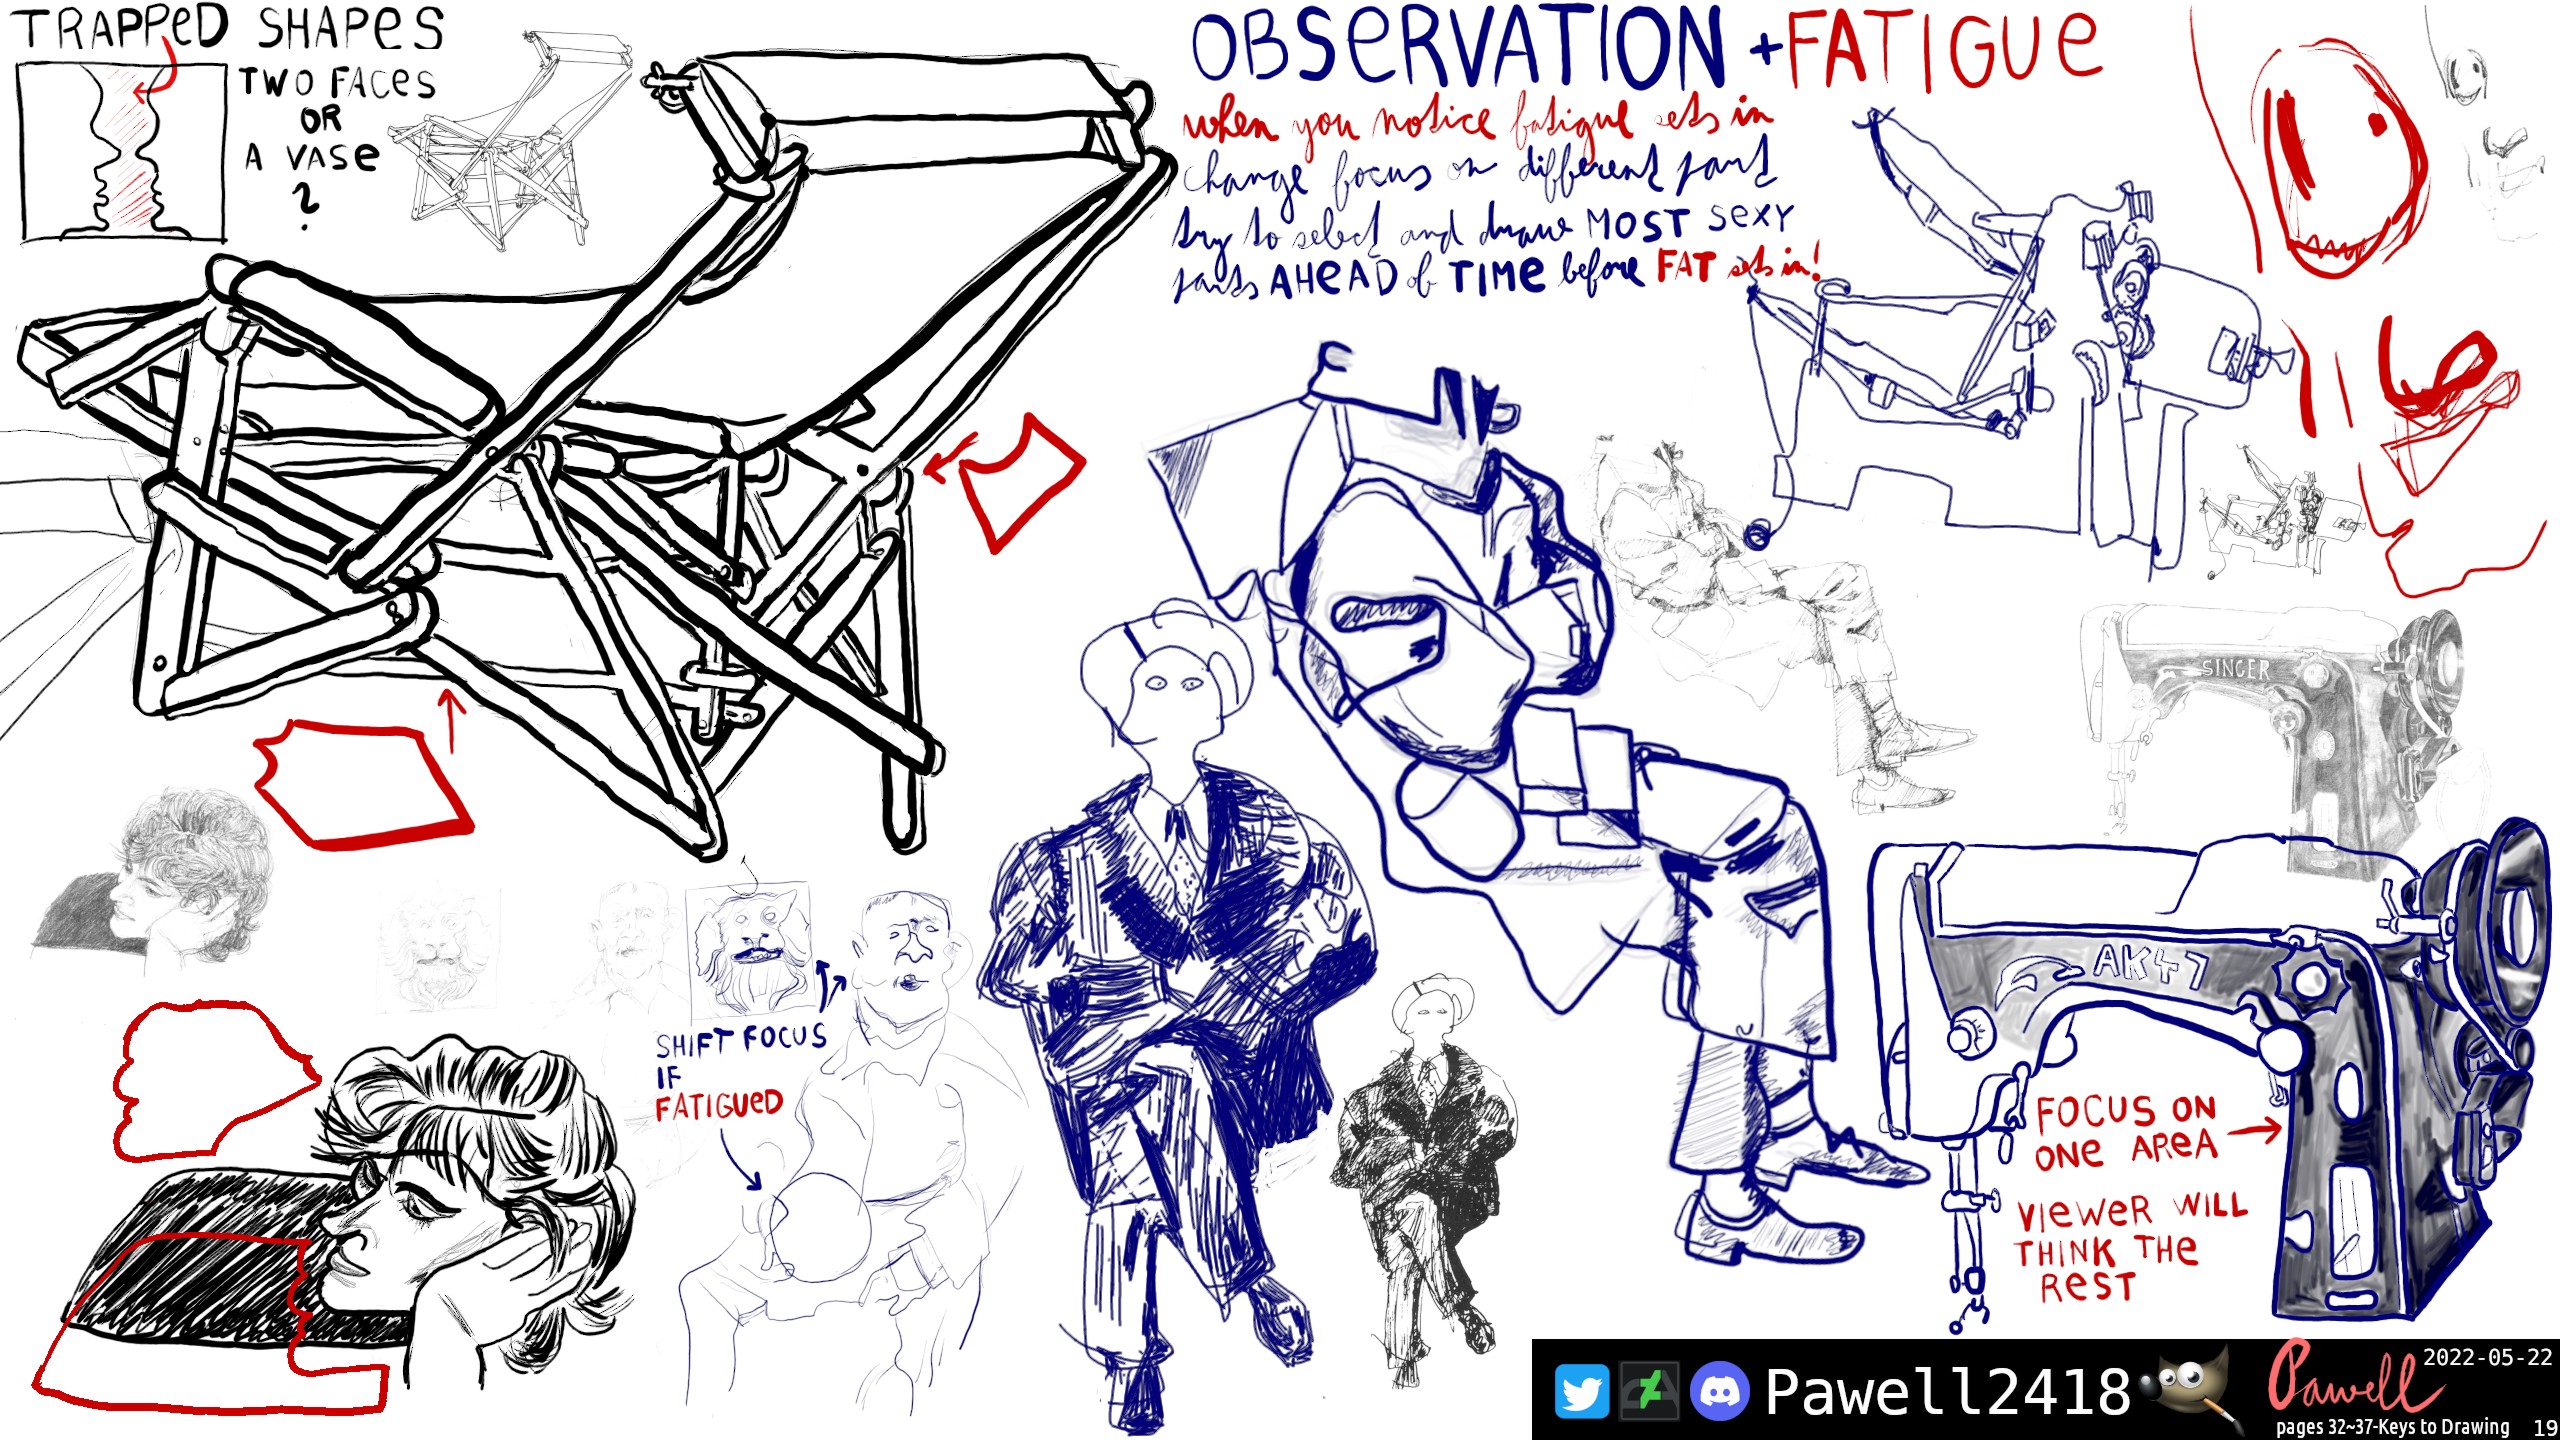 TRAPPeD SHAPeS
TWO FACeS
OR
A VASe
?
OBSeRVATION + FATIGUe
when you notice fatigue sets in
change focus on different part
try to select and draw MOST SeXY
parts AHeAD of TIMe before FAT sets in!
SINGER
AK47
SHIFT FOCUS
IF
FATIGUeD
FOCUS ON
ONe AReA
VIeWeR WILL
THINK THe
ReST
Pawell2418
Pawell
2022-05-22
pages 32~37-Keys to Drawing
19